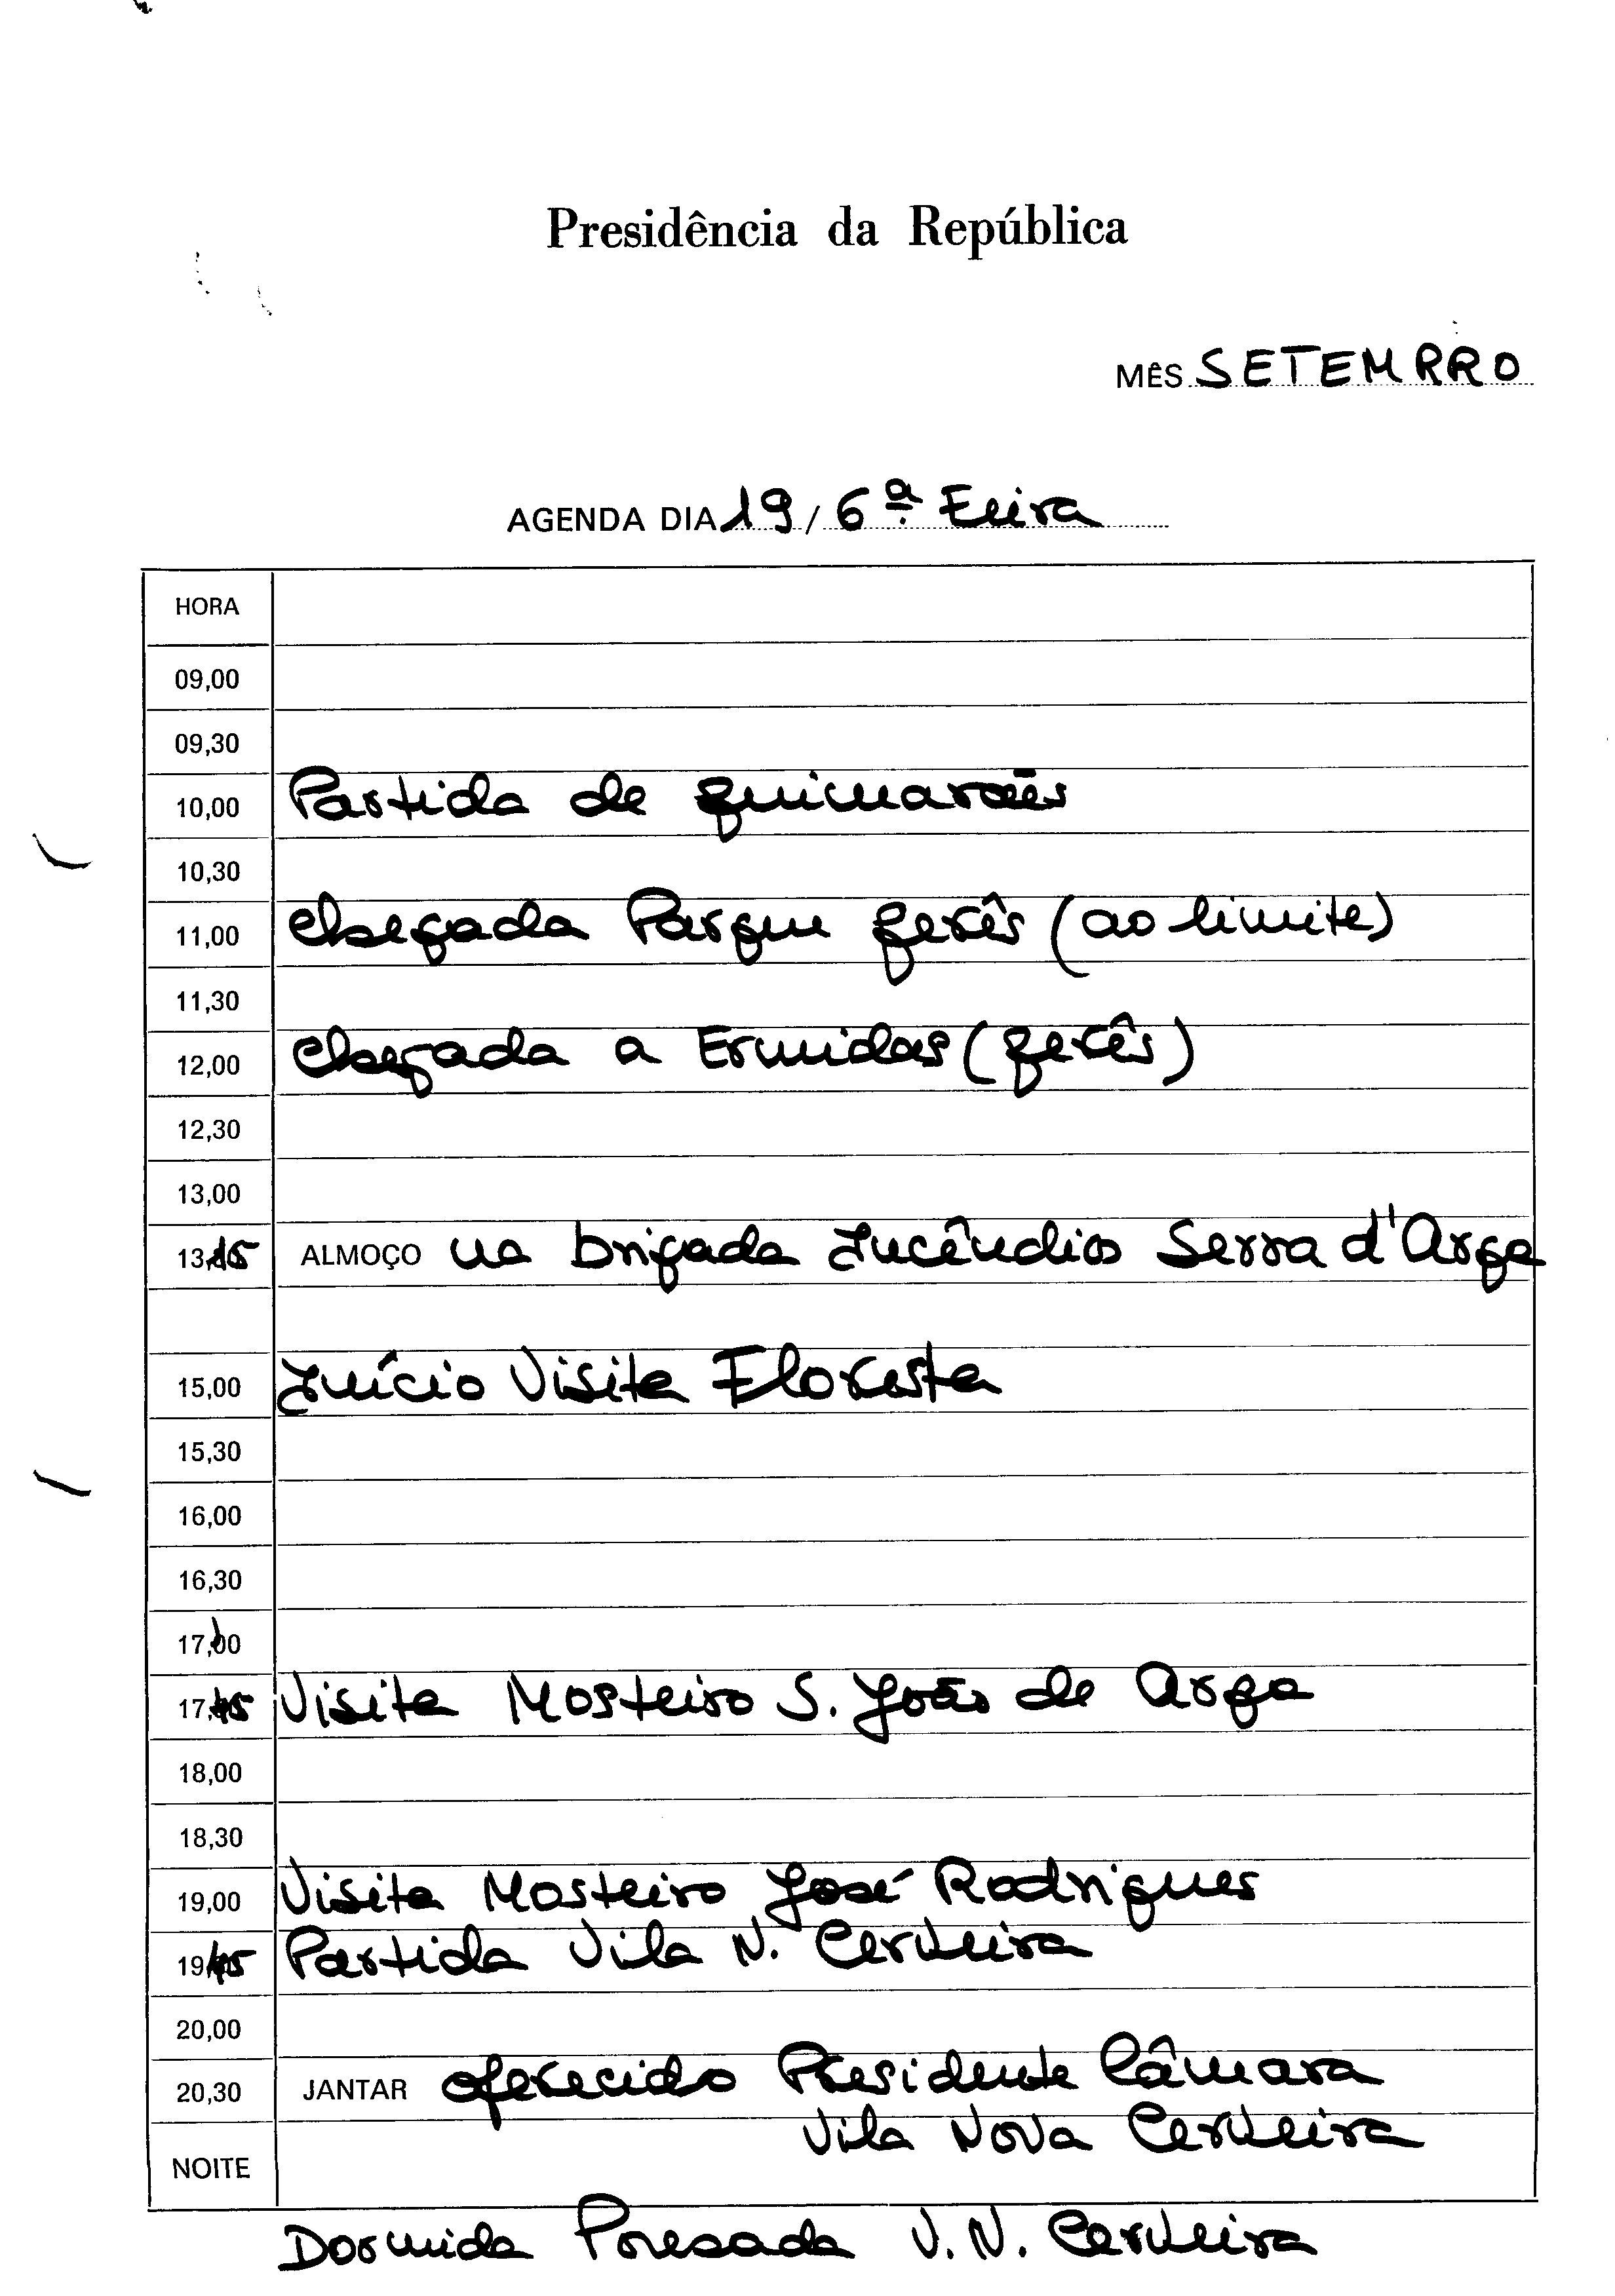 Presidência da República
MÊS SETEMBRO
AGENDA DIA 19 / 6ª Feira
HORA
09,00
09,30
10,00 Partida de Guimarães
10,30
11,00 Chegada Parque Gerês (ao limite)
11,30
12,00 Chegada a Ermidas (Gerês)
12,30
13,00
13,15 ALMOÇO na brigada Incêndios Serra d'Arga
15,00 Início Visita Floresta
15,30
16,00
16,30
17,00
17,45 Visita Mosteiro S. João de Arga
18,00
18,30
19,00 Visita Mosteiro José Rodrigues
19,45 Partida Vila N. Cerveira
20,00
20,30 JANTAR oferecido Presidente Câmara
Vila Nova Cerveira
NOITE
Dormida Pousada V. N. Cerveira